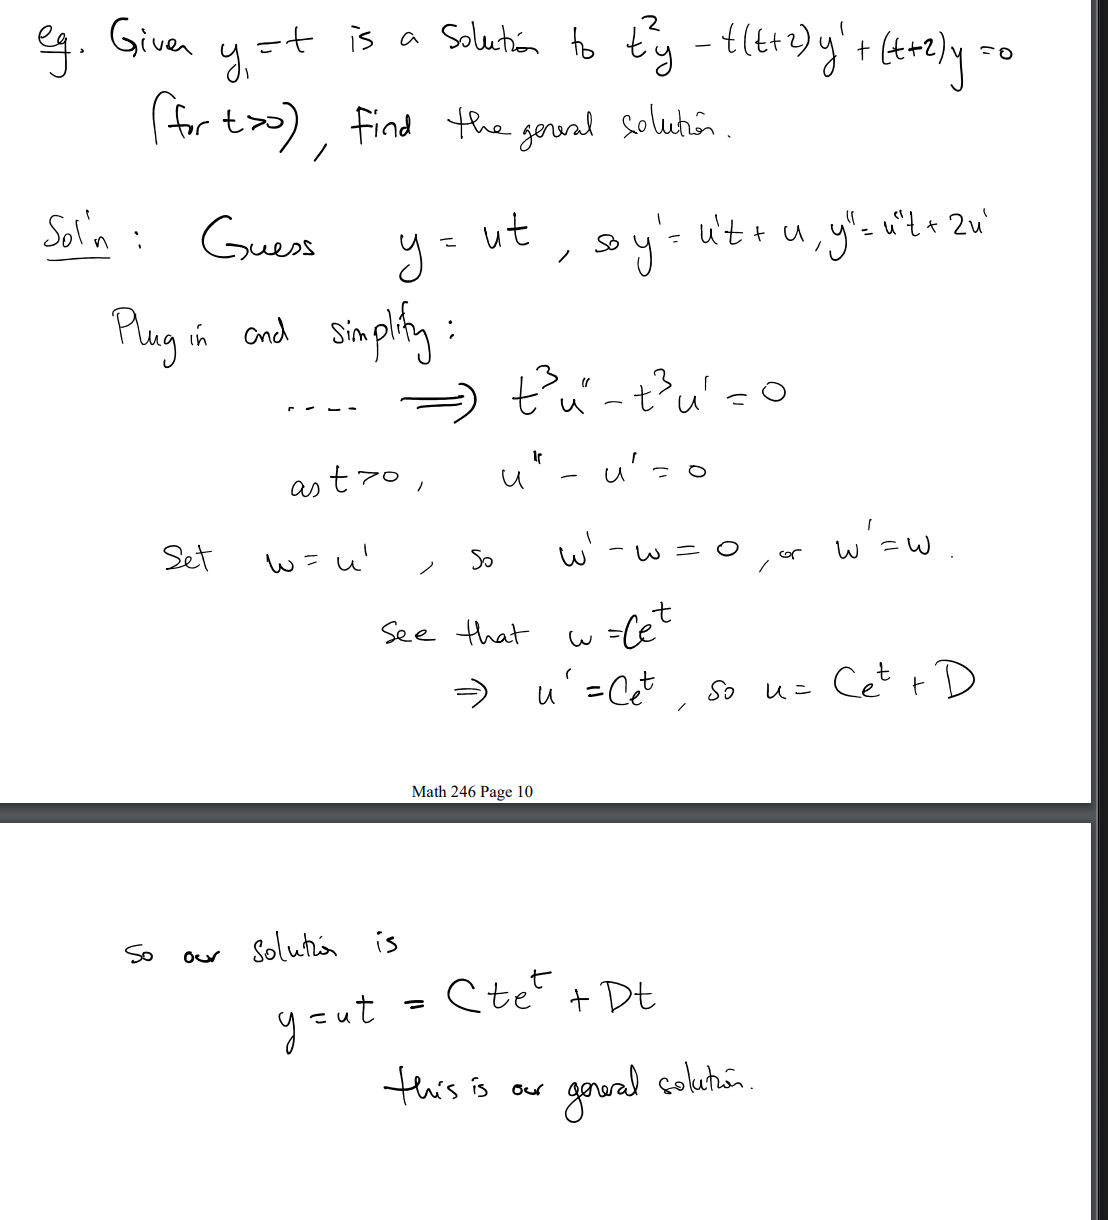 eg. Given y₁ = t is a solution to t²y - t(t+2)y' + (t+2)y = 0
(for t>0), find the general solution.
Sol'n : Guess y = ut, so y' = u't + u, y'' = u''t + 2u'
Plug in and simplify:
.... ⟹ t³u'' - t³u' = 0
as t>0, u'' - u' = 0
Set w = u', so w' - w = 0, or w' = w.
See that w = Ceᵗ
⇒ u' = Ceᵗ, so u = Ceᵗ + D
Math 246 Page 10
So our solution is
y = ut = Cteᵗ + Dt
this is our general solution.